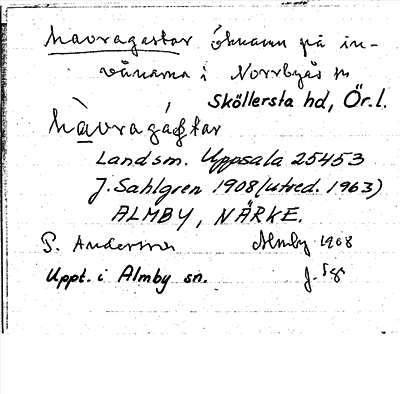 havragastar öknamn på in-
vånarna i Norrbyås sn
Sköllersta hd, Ör. l.
hàvragástar
Landsm. Uppsala 25453
J. Sahlgren 1908 (utred. 1963)
ALMBY, NÄRKE.
P. Andersson Almby 1908
Uppt. i Almby sn. J. Sgr